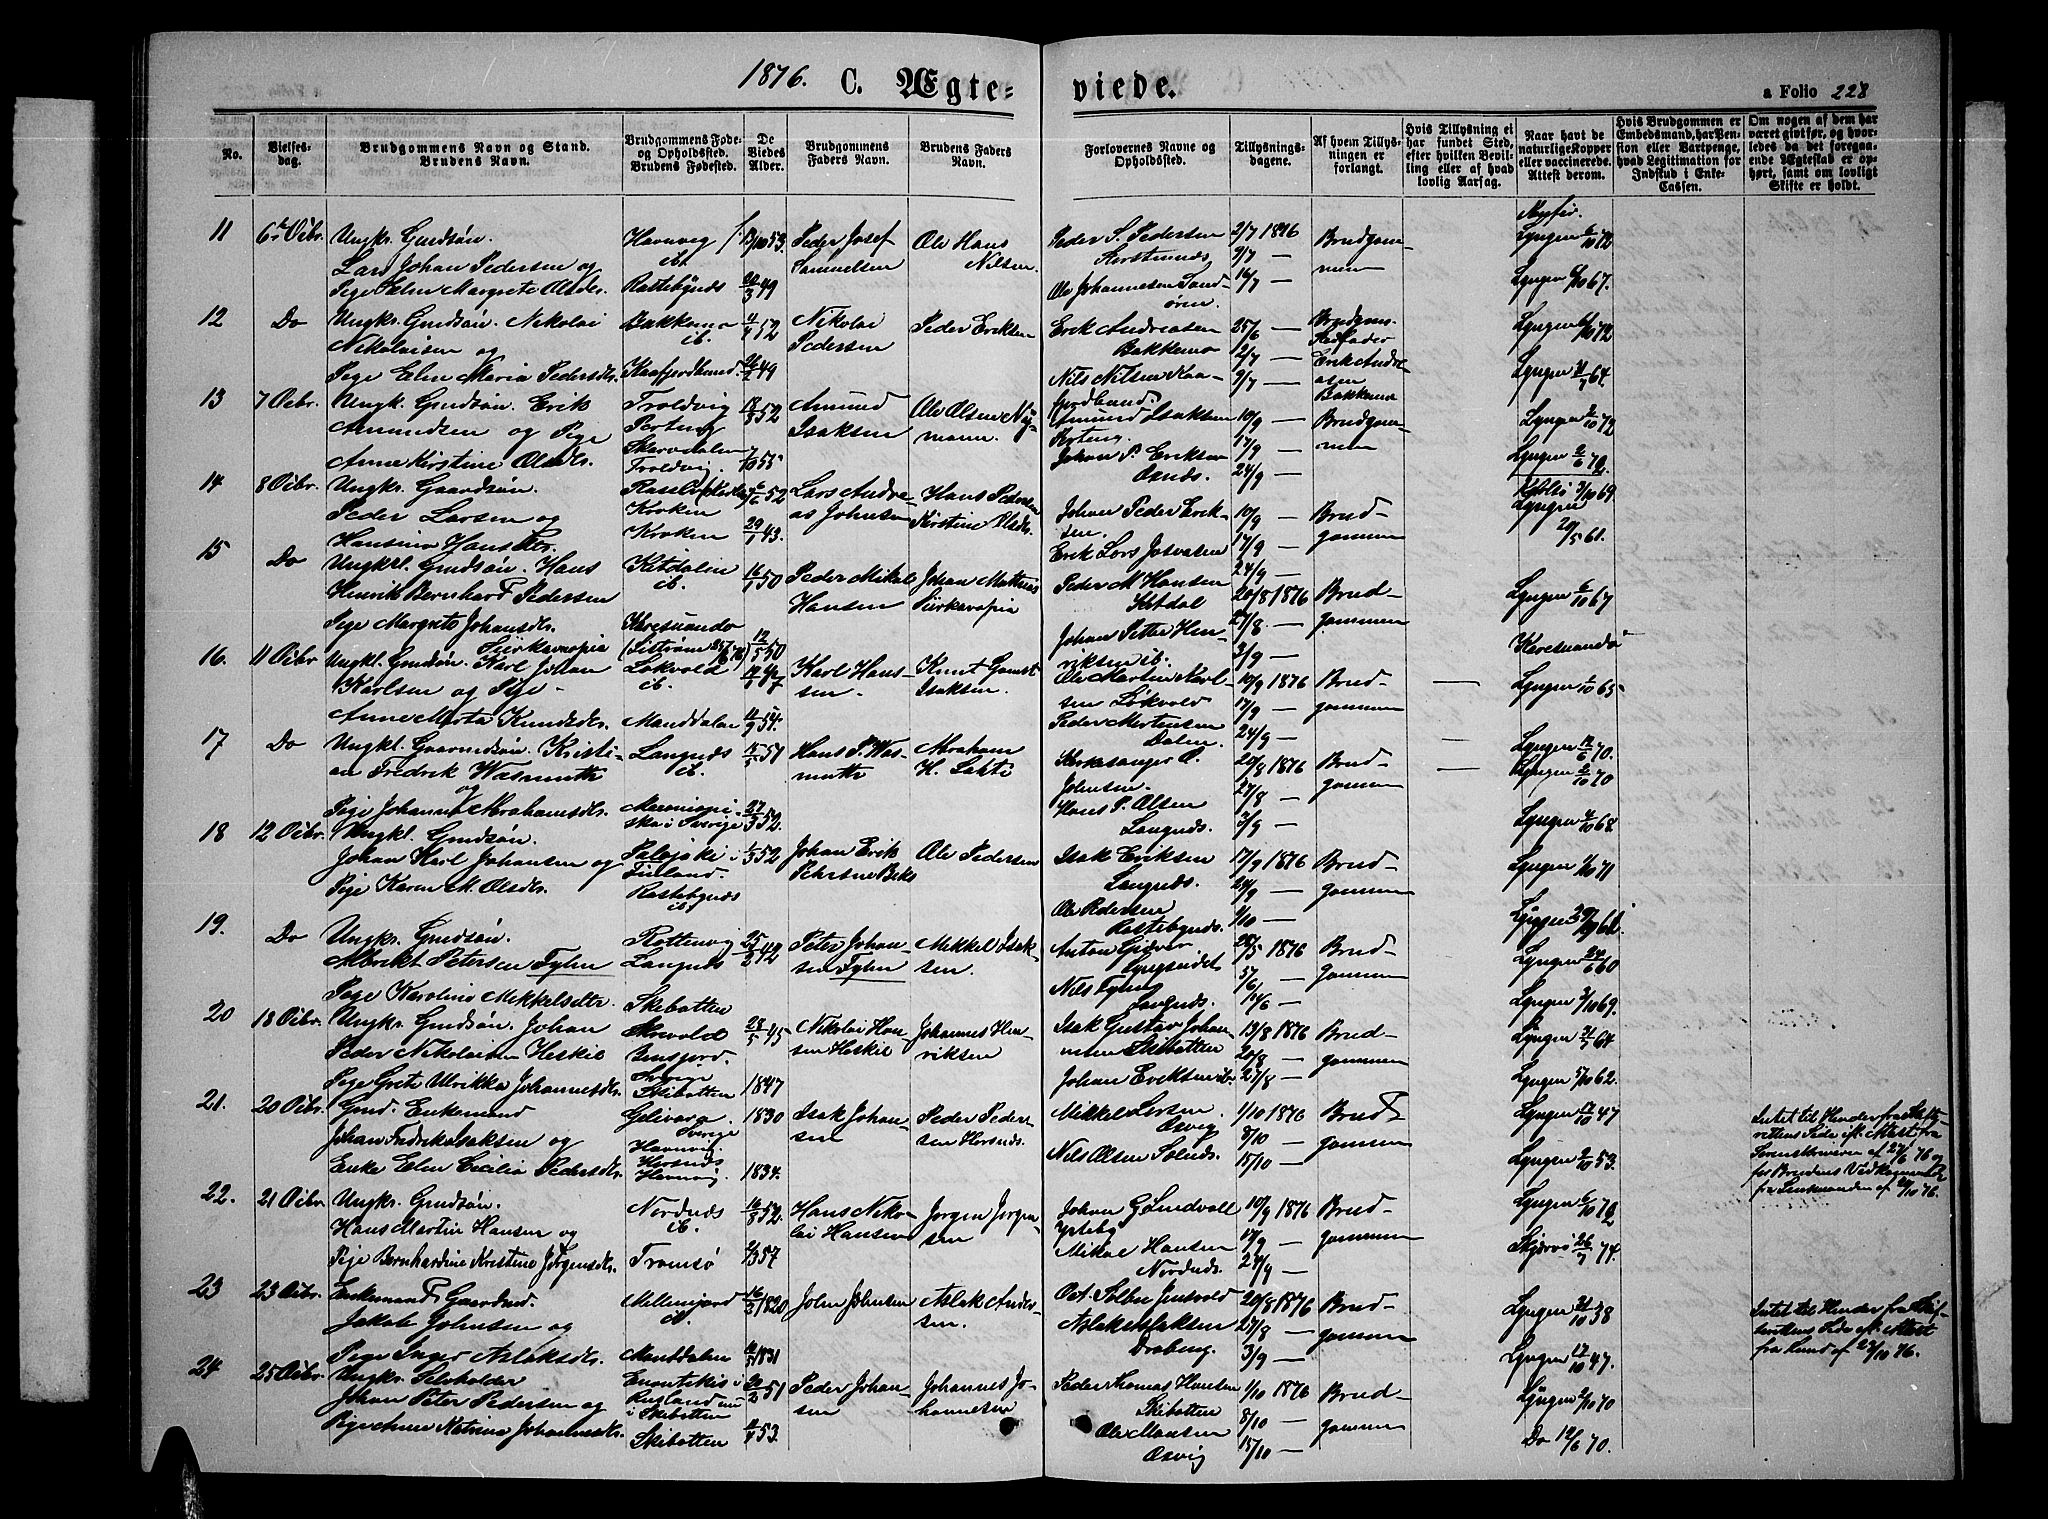 1876. C. Ægte-viede.
a Folio 228
No.
Vielses-
dag.
Brudgommens Navn og Stand.
Brudens Navn.
Brudgommens Føde-
og Opholdssted.
Brudens Fødested.
De
Viedes
Alder.
Brudgommens
Faders Navn.
Brudens Faders
Navn.
Forlovernes Navne og
Opholdssted.
Tillysnings-
dagene.
Af hvem Tillys-
ningen er
forlangt.
Hvis Tillysning ei
har fundet Sted,
efter hvilken Bevil-
ling eller af hvad
lovlig Aarsag.
Naar havt de
naturlige Kopper
eller vaccinerede.
Attest derom.
Hvis Brudgommen er
Embedsmand, har Pen-
sion eller Vartpenge,
hvad Legitimation for
Indskud i Enke-
Cassen.
Om nogen af dem har
været gift før, og hvor-
ledes da det foregaa-
ende Ægteskab er op-
hørt, samt om lovligt
Skifte er holdt.
11
6te Octbr.
Ungkr. Gmdsøn.
Lars Johan Pedersen og
Pige Elen Margrete Olsdr.
Havnvig
ib.
Rastebynds
20/3 49
Peder Josef
Samuelsen
Ole Hans
Nilsen.
Peder S. Pedersen
Ole Johannesen Sand-
ören.
2/7 1876
9/7 —
16/7 —
Brudgom-
men
Lyngen 6/10 72
Lyngen 9/10 67.
12
Do
Ungkr. Gmdsøn. Nikolai
Nikolaisen og
Pige Elen Maria Pedersdr.
Bakkemo
ib.
Kaafjordbund.
4/4 52
49
Nikolai
Pedersen
Peder Eriksen
Erik Andreasen
Bakkemo
Nils Nilsen Kaa-
fjordbund.
25/6 —
2/7 —
9/7 —
Brudgoms
Stedfader
Erik Andre-
asen
Bakkemo
Lyngen 6/10 72
Lyngen 21/7 64.
13
7 Octbr.
Ungk. Gmdsøn. Erik
Amundsen og Pige
Anne Kirstine Olsdr.
Troldvig
Skardalen
Troldvig.
18/8 52
7/10 55
Amund
Isaksen
Ole Olsen Ny-
mann.
Amund Isaksen
Johan P. Eriksen
Osnds.
10/9 —
17/9 —
24/9 —
Brudgom-
men
Lyngen 2/10 72
Lyngen 2/6 72.
14
8 Octbr.
Ungkr. Gaardsøn.
Peder Larsen og
Hansina Hansdtr.
Kroken
Kroken
52
29/1 43.
Lars Andre-
as Johnsen
Hans Peder
Kirstine Olsdr.
Johan Peder Erik-
sen.
Erik Lars Josvasen
10/9 —
17/9 —
24/9 —
Brud-
gommen
3/10 69.
Lyngen
20/5 61.
15
Do
Ungkrl. Gmdsøn. Hans
Henrik Bernhard Pedersen
Pige Margrete Johansdr.
Kitdalen
ib.
Karesuando
16/1 50
12/5 50
Peder Mikal
Hansen
Johan Mathias
Peder M Hansen
Kitdal
Johan Petter Hen-
riksen ib.
20/8 1876
27/8. —
3/9 —
Brud-
gommen
Lyngen 6/10 67
Karesuando
16.
11 Octbr
Ungkl. Gmdsøn. Karl Johan
Karlsen og Pige
Anne Marta Knudsdr.
Løkvold
ib.
Manddalen
11/9 54.
Karl Han-
sen.
Knut Gamst
Isaksen.
Ole Martin Karl-
sen Løkvold
Peder Mortensen
Dalen.
10/9 1876
17/9 —
24/9 —
Brud-
gommen
Lyngen 1/10 65
Lyngen 12/6 70.
17
Do
Ungkl. Gaardsøn. Kristi-
an Fredrik Wasmuth
og
Pige Johanne Abrahamsdr.
Langnds
ib.
i Sverige
51
27/3 52.
Hans P. Was-
muth
Abraham
H. Lahti
Kirkesanger O.
Johnsen.
Hans P. Olsen
Langnds.
20/8 1876
27/8 —
3/9 —
Brud-
gommen
Lyngen 2/10 70
Lyngen 4/10 68.
18
12 Octbr.
Ungkl. Gmdsøn.
Johan Karl Johansen og
Pige Karen M Olsdr.
Palojoki i
Finland.
Rastebynds
ib.
1/3 52
Johan Erik
Ole Pedersen
Isak Eriksen
Langnds.
Ole Pedersen
Rastebynds.
17/9 1876
24/9 —
1/10 —
Brud-
gommen
Lyngen 1/10 71
19.
Do
Ungkr. Gmdsøn.
Albrikt Petersen Fyhn
Pige Karolina Mekkelsdtr.
Rottenvig
Langnds
Skibotten
25/2 42
Peter Johan-
sen Fyhn
Mekkel Isak-
sen.
Anton Gjæver
Lyngseidet
Nils Lyng
Langnds.
28/5 1876
5/6 —
11/6 —
Brud-
gommen
Lyngen 24/6 60
Lyngen 3/10 69.
20
18 Octbr.
Ungkr. Gmdsøn. Johan
Peder Nikolaisen Heskil
Pige Grete Ulrikka Johannesdr.
Skibotten
28/5 45
1847
Nikolai Han-
sen Heskil
Johannes Hen-
riksen
Isak Gustav Johan-
nesen Skibotten
Johan Eriksen ib.
13/8 1876
20/8 —
27/8 —
Brud-
gommen
Lyngen 21/7 64
Lyngen 5/10 62.
21.
20 Octbr.
Gmd. Enkemand
Johan Fredrik Isaksen og
Enke Elen Cicilia Pedersdr.
Gelivara
Sverige
Havnvig.
Horsnds
Havnvig.
1830
1834.
Isak Johan-
sen
Peder Peder-
sen Horsnds.
Mikkel Larsen
Osvig
Nils Olsen Solnds.
1/10 1876
8/10 —
15/10 —
Brud-
gommen
Lyngen 17/10 47
Lyngen 2/10 53.
Intet til Hinder fra Skifte-
rettens Side efter Attest fra
Sorenskriveren af 27/6 76 og
for Brudens Vedkommende
fra Lensmanden af 20/10 76.
22.
21 Octbr.
Ungkr. Gmdsøn.
Hans Martin Hansen og
Pige Bernhardine Kristine Jørgensdr.
Nordnds
ib.
Tromsø
16/8 52.
2/3 57
Hans Niko-
lai Hansen
Jørgen Jørgen-
sen
Johan G Lundvall
Ysteby
Mikal Hansen
Nordnds.
10/9 1876
17/9 —
24/9 —
Brud-
gommen
Lyngen 6/10 72
Skjervø 26/7 74.
23
23 Octbr.
Enkemand Gaardmd.
Jakob Johnsen og
Pige Inger Aslaksdr.
ib.
Manddalen
16/2 1820
1831
John Johnsen
Aslak Ander-
sen.
Aslak Aslaksen
20/8 1876
27/8 —
3/9 —
Brud-
gommen
Lyngen 21/10 38
Lyngen 17/10 47.
Intet til Hinder fra Skif-
terettens Side eft. Attest
fra Lensmd af 23/10 76.
24
25 Octbr.
Ungkr. Selvholder
Johan Peter Pedersen og
Pige Anne Matrina Johannesdr.
Enontekis i
Rusland nu
i Skibotten
Skibotten
20/2 51
4/4 53.
Peder Johan-
sen
Johannes Jo-
hannesen
Peder Thomas Hansen
Skibotten
Ole Monsen
Osvig
1/10 1876
8/10 —
15/10 —
Brud-
gommen
Lyngen 2/10 70
Do 12/6 70.